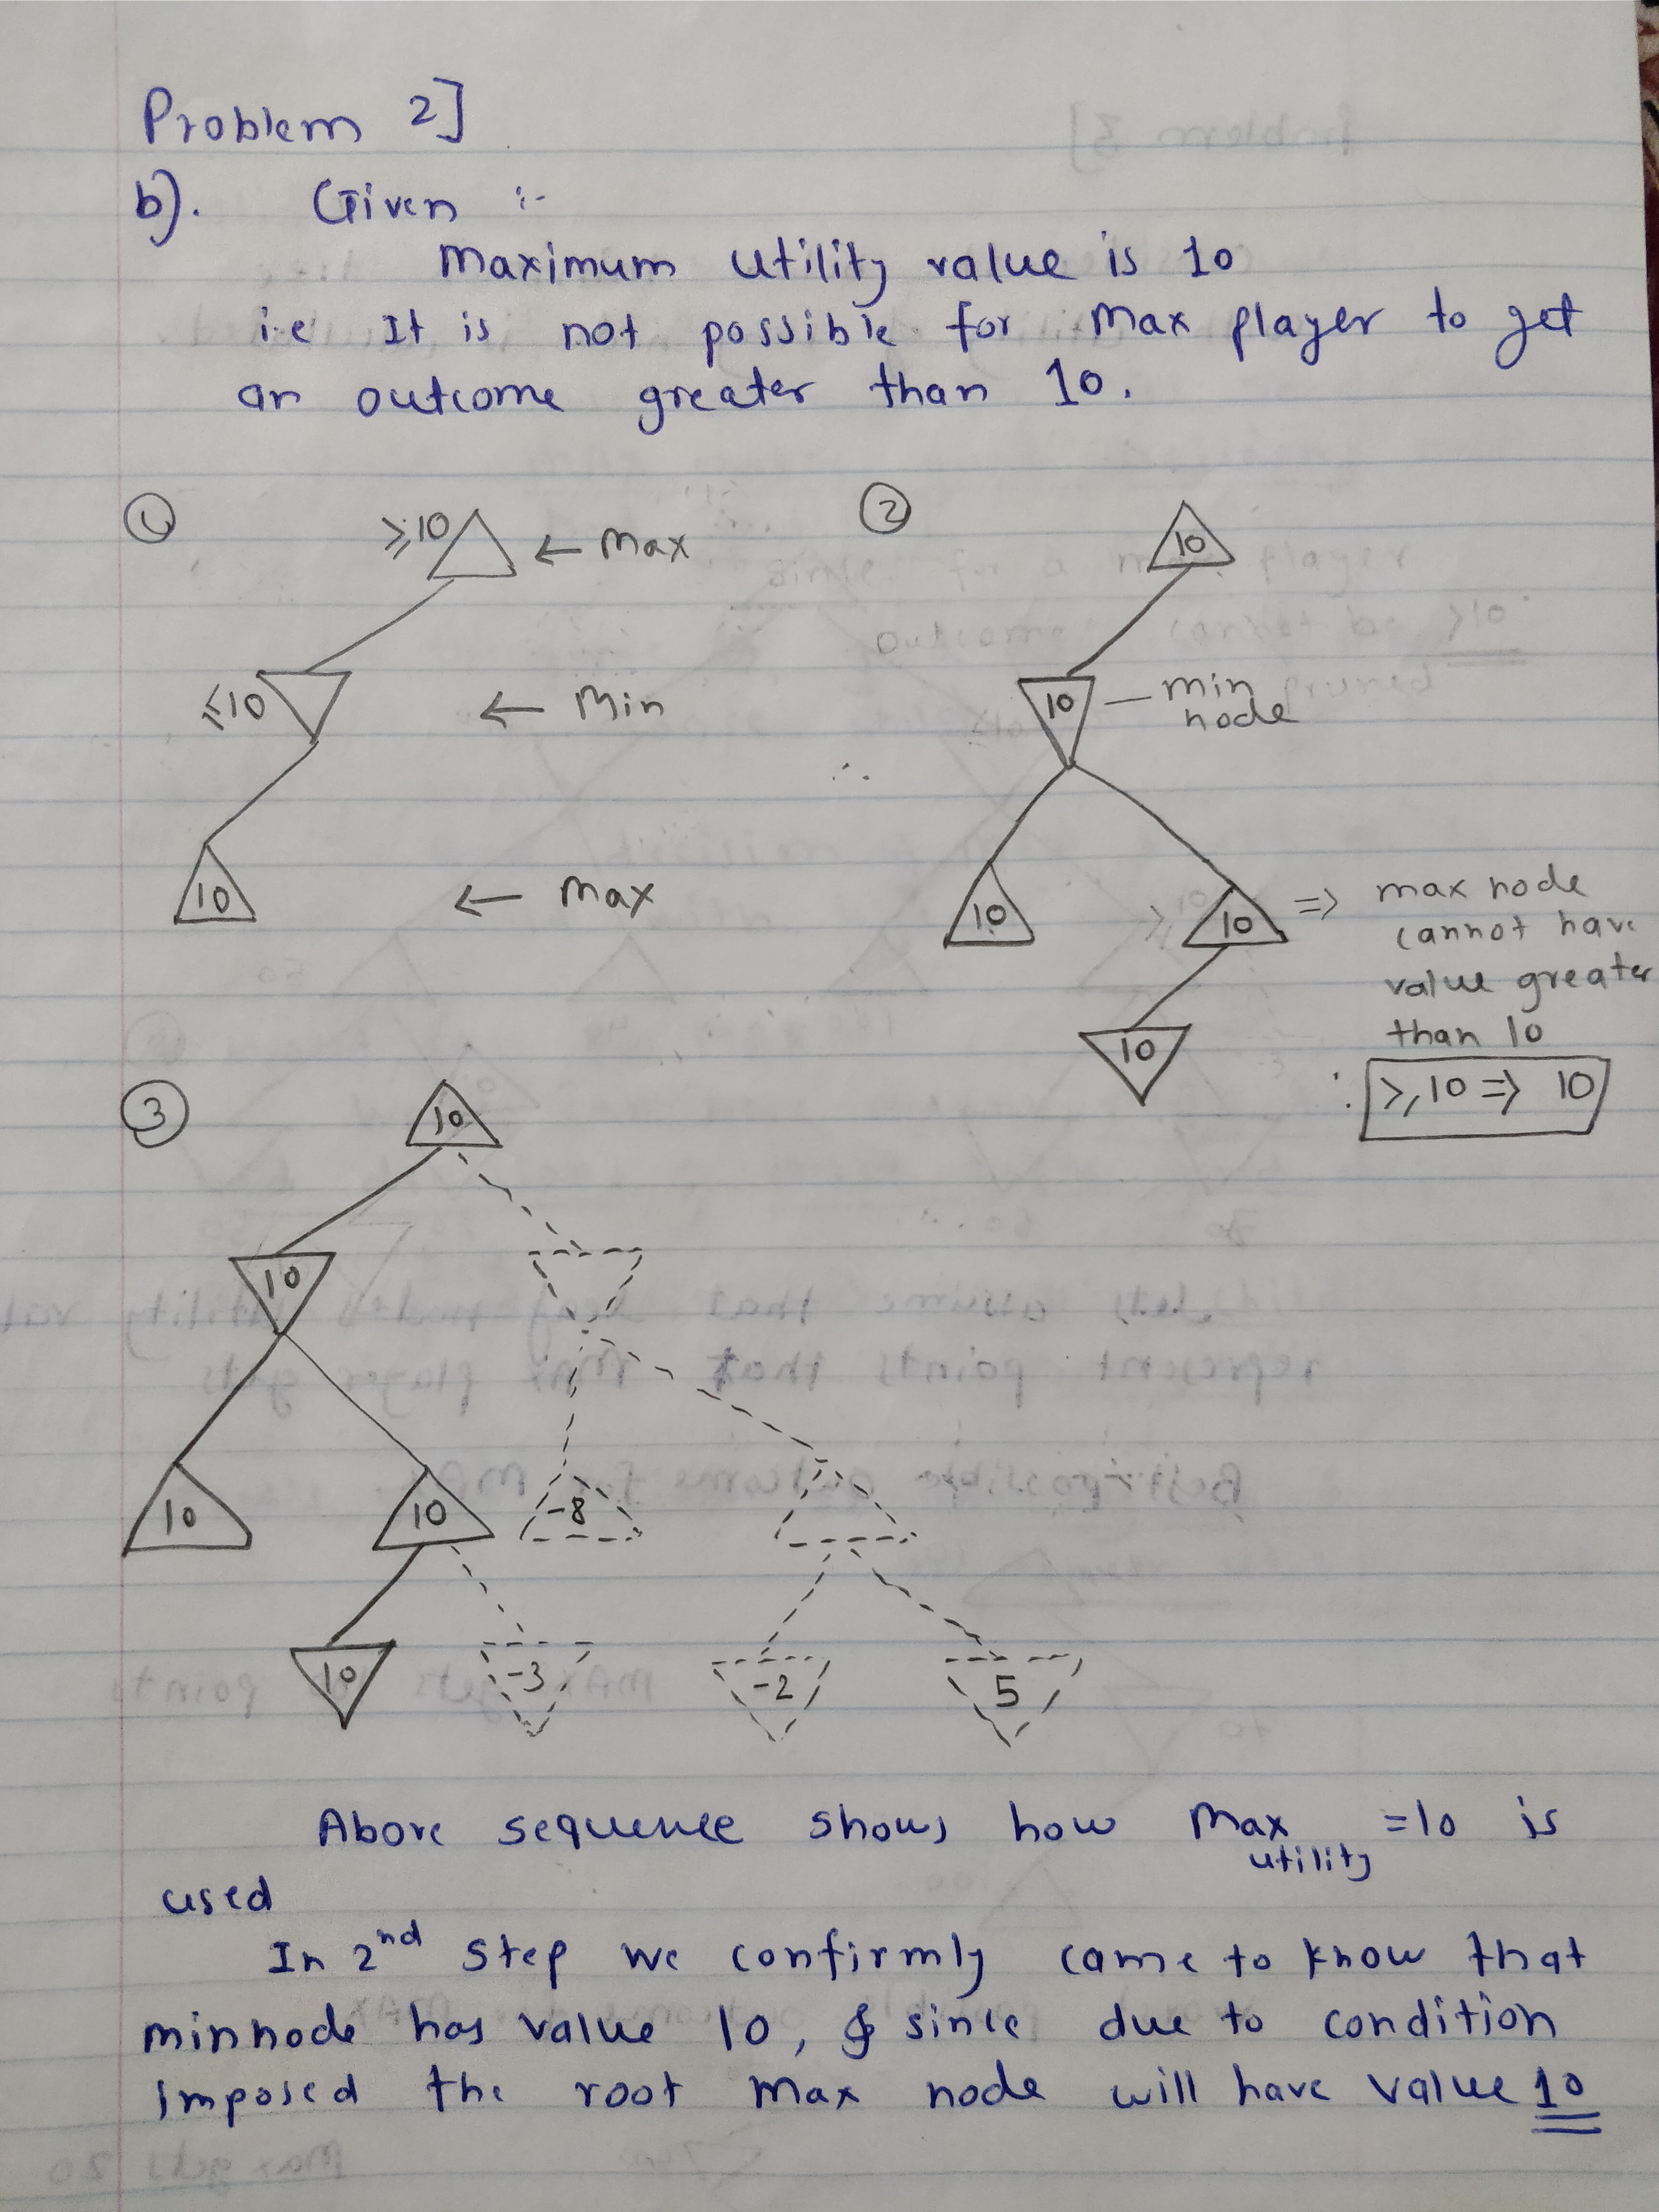 Problem 2]
b). Given :-
Maximum utility value is 10
i.e It is not possible for Max player to get
an outcome greater than 10.
① ≥10 ← Max
≤10 ← Min
10 ← Max
② 10
10 — min
node
∴
10 10 => max node
cannot have
value greater
than 10
10
∴ ≥10 => 10
③ 10
10
10 10 -8
10 -3 -2 5
Above sequence shows how Max = 10 is
utility
used
In 2nd step we confirmly came to know that
minnode has value 10, & since due to condition
imposed the root max node will have value 10